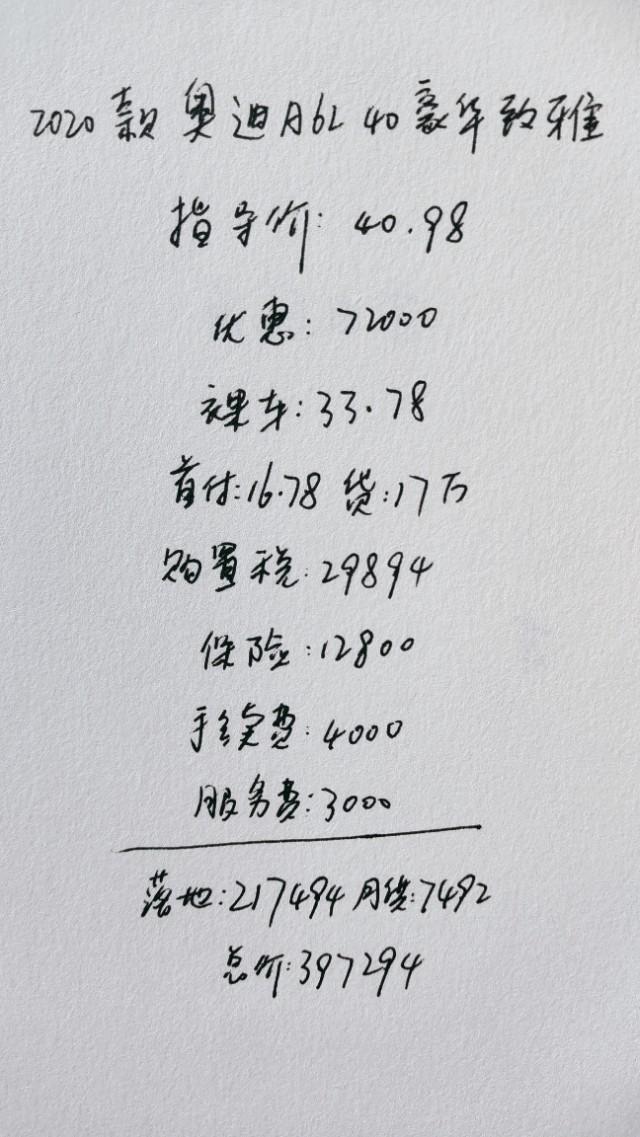 2020款奥迪A6L 40豪华致雅
指导价: 40.98
优惠: 72000
裸车: 33.78
首付: 16.78 贷: 17万
购置税: 29894
保险: 12800
手续费: 4000
服务费: 3000
落地: 217494 月供: 7492
总价: 397294